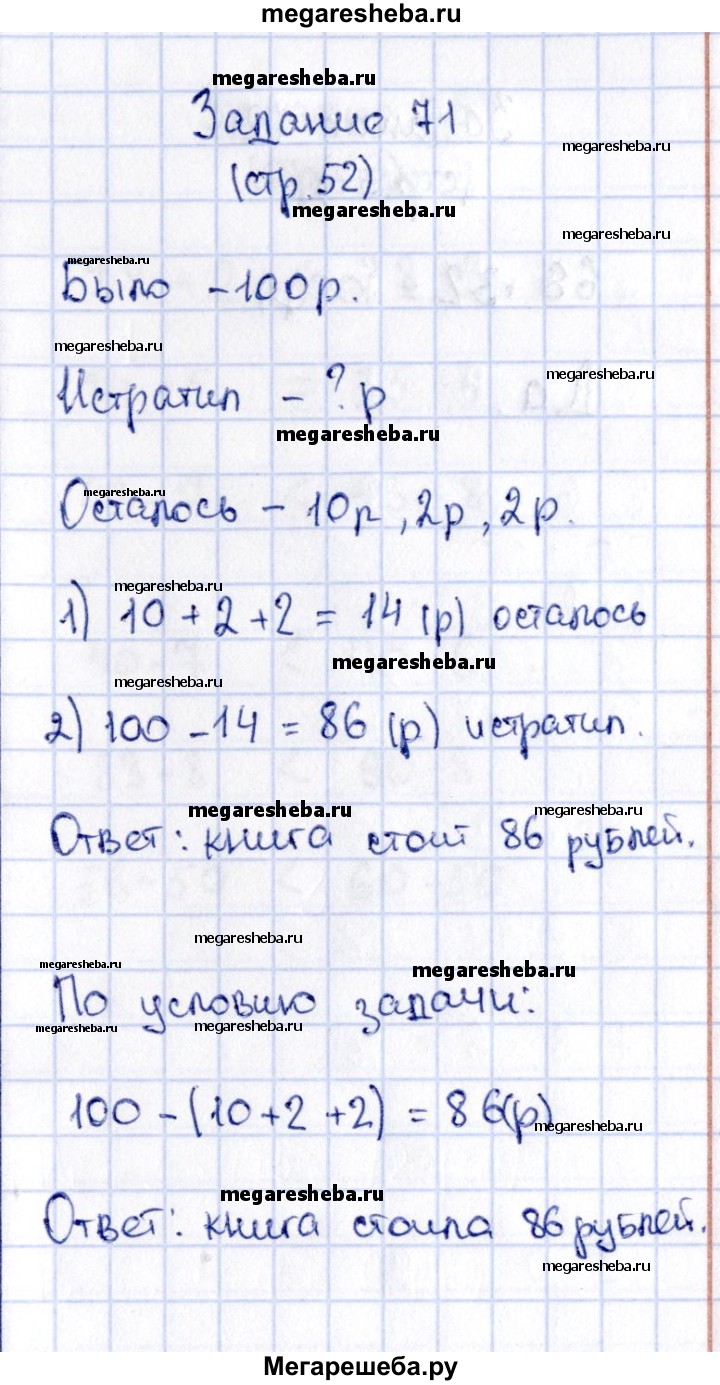 megaresheba.ru
megaresheba.ru
Задание 71
megaresheba.ru
(стр. 52)
megaresheba.ru
megaresheba.ru
megaresheba.ru
Было - 100 р.
megaresheba.ru
megaresheba.ru
Истратил - ? р
megaresheba.ru
megaresheba.ru
Осталось - 10 р, 2 р, 2 р.
megaresheba.ru
megaresheba.ru
1) 10 + 2 + 2 = 14 (р) осталось
megaresheba.ru
megaresheba.ru
2) 100 - 14 = 86 (р) истратил.
megaresheba.ru
megaresheba.ru
Ответ: книга стоит 86 рублей.
megaresheba.ru
megaresheba.ru
megaresheba.ru
По условию задачи:
megaresheba.ru
megaresheba.ru
100 - (10 + 2 + 2) = 86 (р)
megaresheba.ru
megaresheba.ru
Ответ: книга стоила 86 рублей.
megaresheba.ru
Мегарешеба.ру